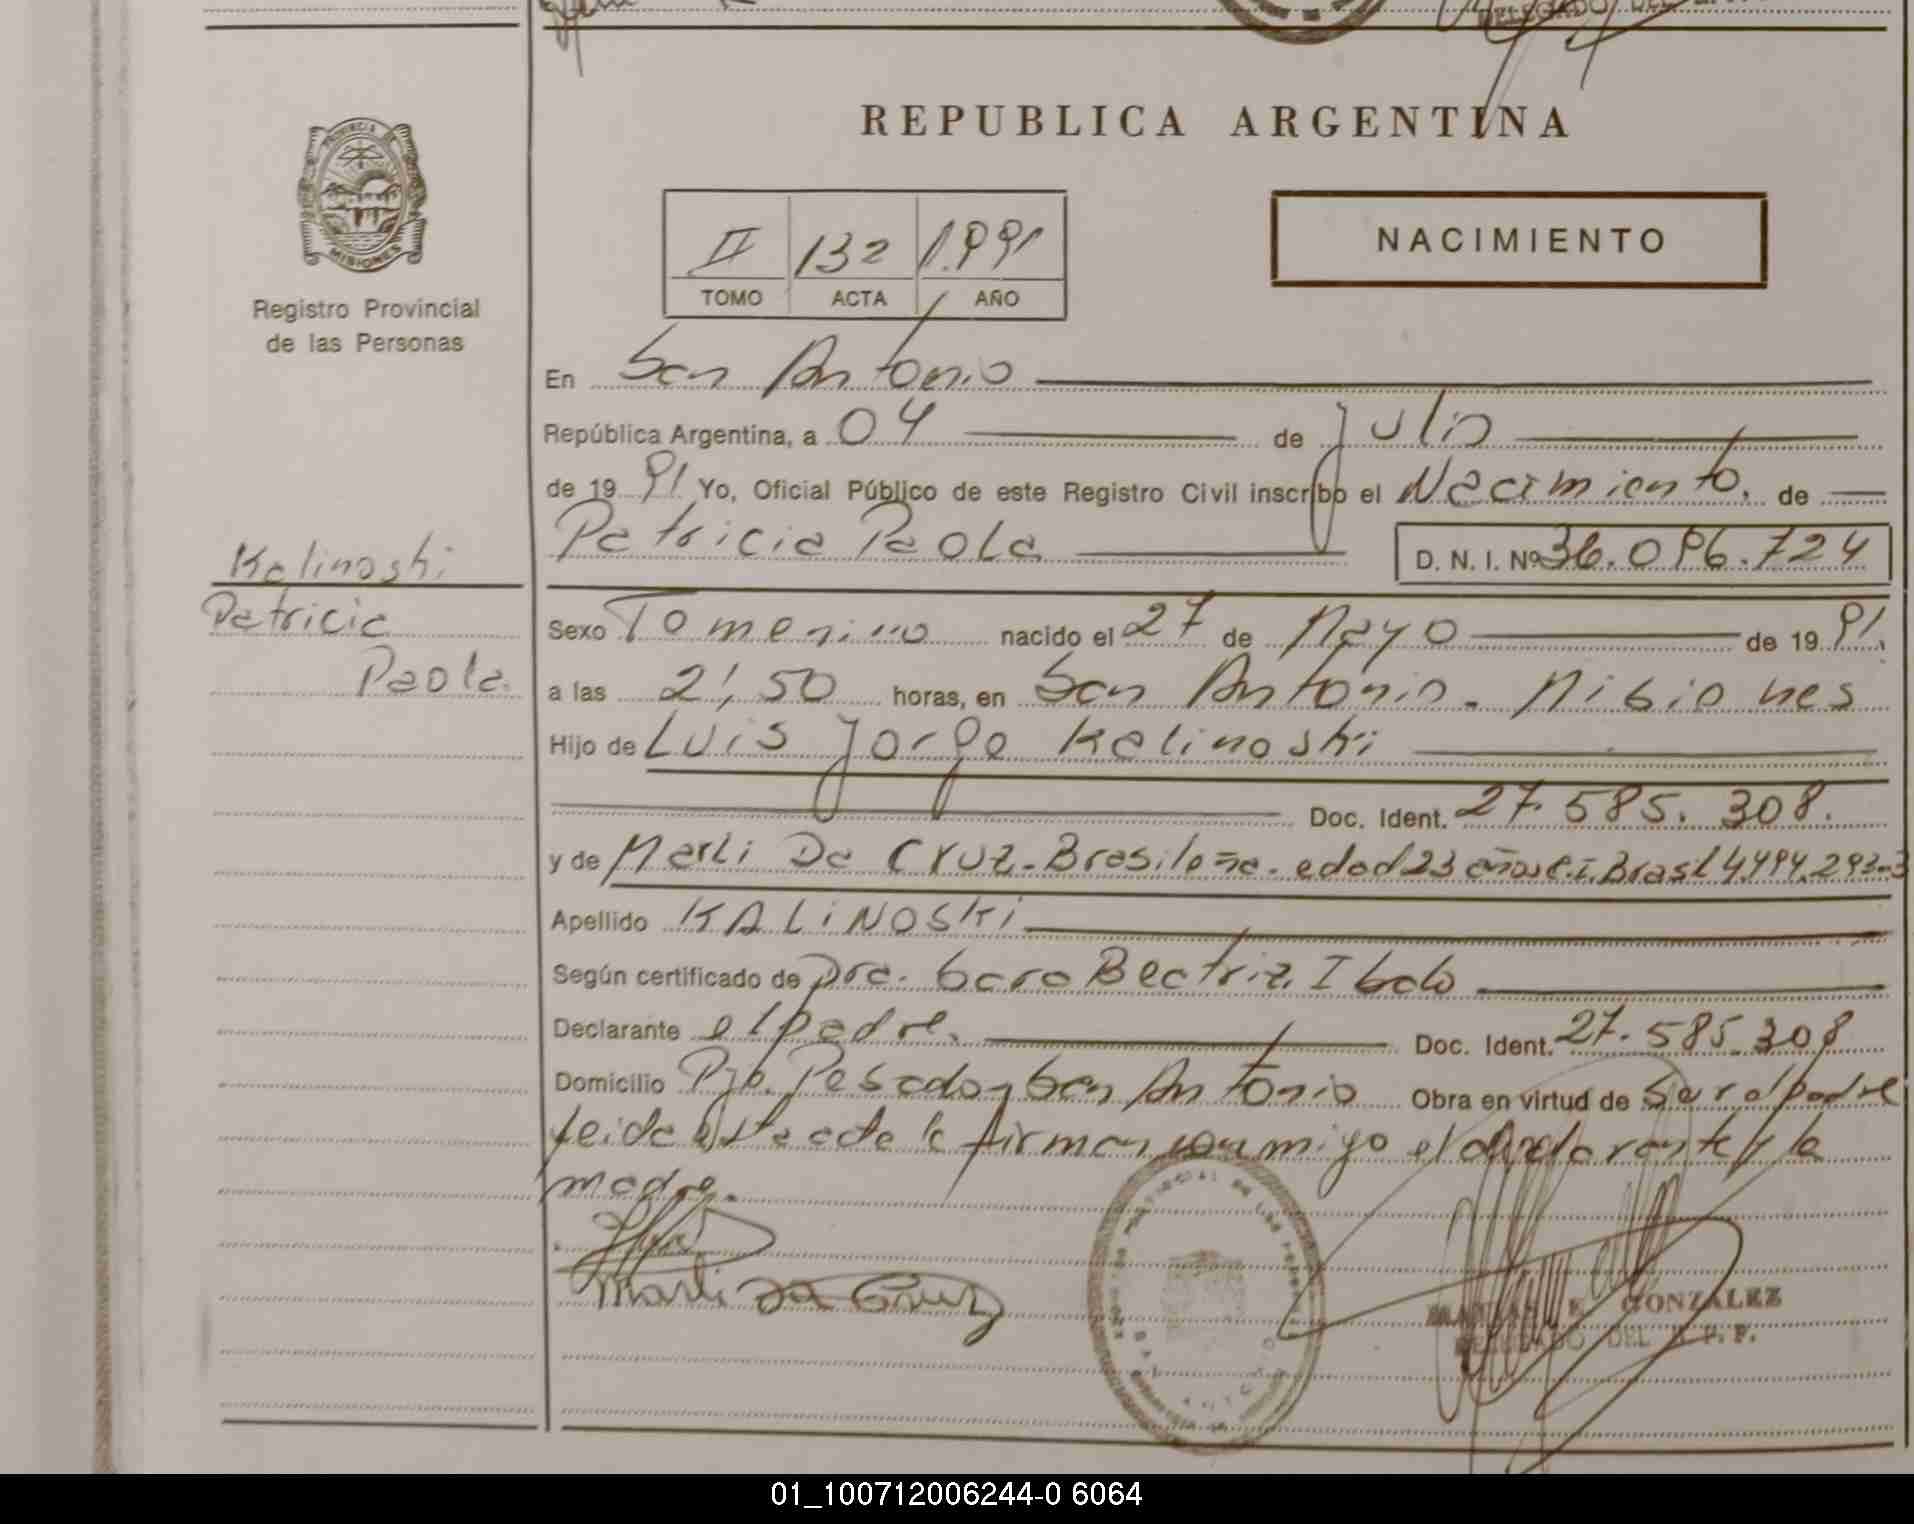 REPUBLICA ARGENTINA
PROVINCIA DE
MISIONES
Registro Provincial
de las Personas
II 132 1.991
TOMO ACTA AÑO
NACIMIENTO
En San Antonio
República Argentina, a 04 de Julio
de 19 91 Yo, Oficial Público de este Registro Civil inscribo el Nacimiento. de
Patricia Paola D. N. I. Nº 36.096.724
Kalinoski
Patricia
Paola.
Sexo Femenino nacido el 27 de Mayo de 19 91.
a las 21,50 horas, en San Antonio - Misiones
Hijo de Luis Jorge Kalinoski
Doc. Ident. 27.585.308.
y de Marli Da Cruz - Brasileña - edad 23 años c.i. Brasil 4.494.293-3
Apellido KALINOSKI
Según certificado de Dra. Sara Beatriz
Declarante el padre. Doc. Ident. 27.585.308
Domicilio Pje. Pesado - San Antonio Obra en virtud de Ser el padre
leida esta acta la firman conmigo el declarante y la
madre.
Marli da Cruz
MATIAS E GONZALEZ
DELEGADO DEL R. P. P.
01_100712006244-0 6064